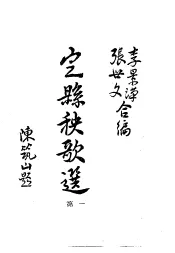 李景漢
張世文合編
定縣秧歌選
第一
陳筑山題